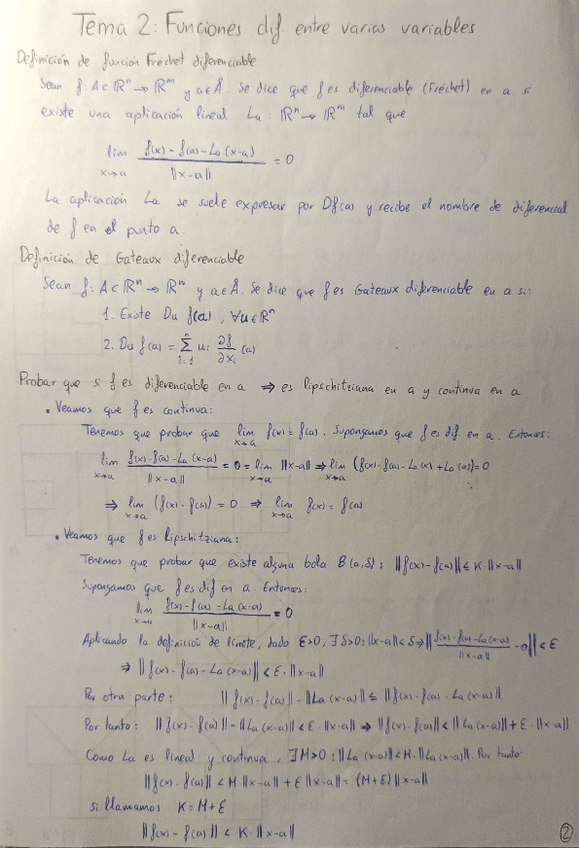 Tema 2: Funciones dif entre varias variables
Definición de función Fréchet diferenciable
Sean f: A⊂ℝⁿ→ℝᵐ y a∈Å. Se dice que f es diferenciable (Fréchet) en a si
existe una aplicación lineal La: ℝⁿ→ℝᵐ tal que
lim x→a (f(x)-f(a)-La(x-a))/||x-a|| = 0
La aplicación La se suele expresar por Df(a) y recibe el nombre de diferencial
de f en el punto a.
Definición de Gateaux diferenciable
Sean f: A⊂ℝⁿ→ℝᵐ y a∈Å. Se dice que f es Gateaux diferenciable en a si:
1. Existe Du f(a), ∀u∈ℝⁿ
2. Du f(a) = Σ i=1 n ui ∂f/∂xi (a)
Probar que si f es diferenciable en a ⇒ es lipschitziana en a y continua en a
• Veamos que f es continua:
Tenemos que probar que lim x→a f(x) = f(a). Supongamos que f es dif. en a. Entonces:
lim x→a (f(x)-f(a)-La(x-a))/||x-a|| = 0 = lim x→a ||x-a|| ⇒ lim x→a (f(x)-f(a)-La(x)+La(a)) = 0
⇒ lim x→a (f(x)-f(a)) = 0 ⇒ lim x→a f(x) = f(a)
• Veamos que f es Lipschitziana:
Tenemos que probar que existe alguna bola B(a,δ): ||f(x)-f(a)|| ≤ K·||x-a||
Supongamos que f es dif en a. Entonces:
lim x→a (f(x)-f(a)-La(x-a))/||x-a|| = 0
Aplicando la definición de límite, dado ε>0, ∃δ>0: ||x-a||<δ ⇒ ||(f(x)-f(a)-La(x-a))/||x-a|| -0|| < ε
⇒ ||f(x)-f(a)-La(x-a)|| < ε·||x-a||
Por otra parte: ||f(x)-f(a)||-||La(x-a)|| ≤ ||f(x)-f(a)-La(x-a)||
Por tanto: ||f(x)-f(a)||-||La(x-a)|| < ε·||x-a|| ⇒ ||f(x)-f(a)|| < ||La(x-a)||+ε·||x-a||
Como La es lineal y continua, ∃M>0: ||La(x-a)|| < M·||La(x-a)||. Por tanto:
||f(x)-f(a)|| < M||x-a||+ε||x-a|| = (M+ε)||x-a||
si llamamos K=M+ε
||f(x)-f(a)|| < K·||x-a||
2